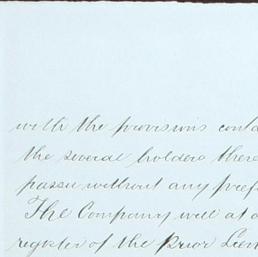 with the provisions cont
the several holders there
passu without any pref
The Company will at a
register of the Prior Lien